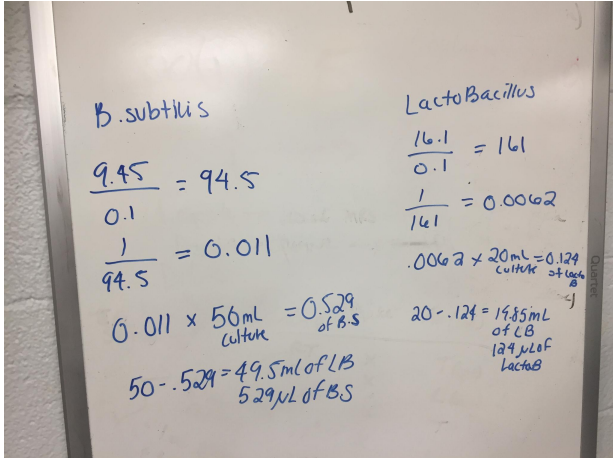 B. subtilis
9.45
0.1
= 94.5
1
94.5
= 0.011
0.011 x 50mL = 0.529
culture of B.S
50-.529 = 49.5ml of LB
529 µL of BS
LactoBacillus
16.1
0.1
= 161
1
161
= 0.0062
.0062 x 20mL = 0.124
culture of Lacto
B
20-.124 = 19.85mL
of LB
124 µL of
LactoB
Quartet